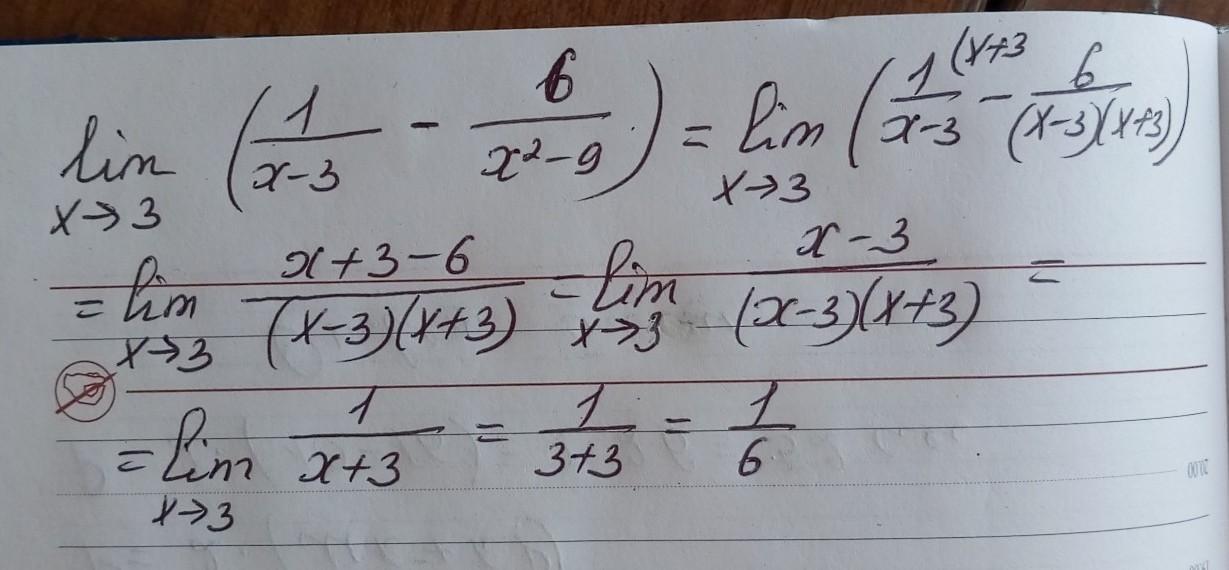 lim x→3 (1/(x-3) - 6/(x²-9)) = lim x→3 (1 (x+3/(x-3) - 6/((x-3)(x+3)))
= lim x→3 (x+3-6)/((x-3)(x+3)) = lim x→3 (x-3)/((x-3)(x+3)) =
= lim x→3 1/(x+3) = 1/(3+3) = 1/6
20.00